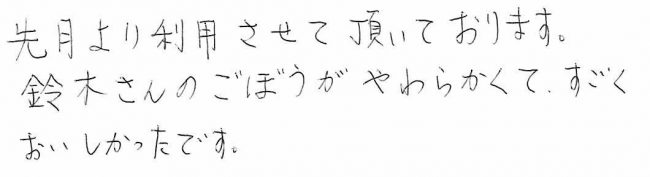 先月より利用させて頂いております。
鈴木さんのごぼうがやわらかくて、すごく
おいしかったです。